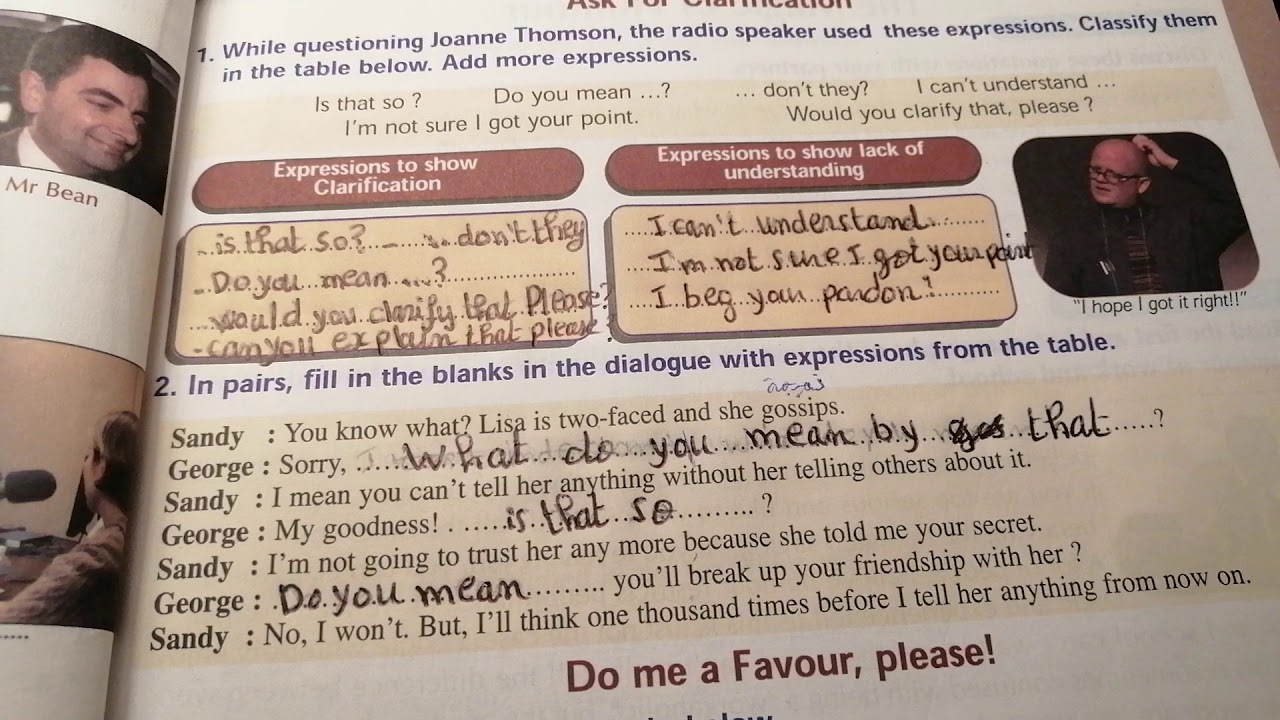 Ask For Clarification
1. While questioning Joanne Thomson, the radio speaker used these expressions. Classify them
in the table below. Add more expressions.
Is that so ? Do you mean ...? ... don't they? I can't understand ...
I'm not sure I got your point. Would you clarify that, please ?
Mr Bean
Expressions to show
Clarification
is that so? ... don't they
Do you mean ....?
would you clarify that Please?
- can you explain that please ?
Expressions to show lack of
understanding
I can't understand
I'm not sure I got your point
I beg your pardon!
"I hope I got it right!!"
2. In pairs, fill in the blanks in the dialogue with expressions from the table.
Sandy : You know what? Lisa is two-faced and she gossips.
George : Sorry, ... What do you mean by that ...?
Sandy : I mean you can't tell her anything without her telling others about it.
George : My goodness! ... is that so ... ?
Sandy : I'm not going to trust her any more because she told me your secret.
George : Do you mean ... you'll break up your friendship with her ?
Sandy : No, I won't. But, I'll think one thousand times before I tell her anything from now on.
Do me a Favour, please!